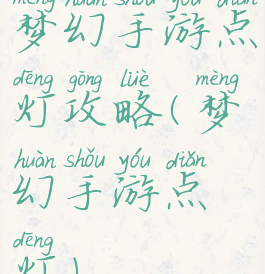 mèng huàn shǒu yóu diǎn
梦幻手游点
dēng gōng lüè mèng
灯攻略(梦
huàn shǒu yóu diǎn
幻手游点
dēng
灯)